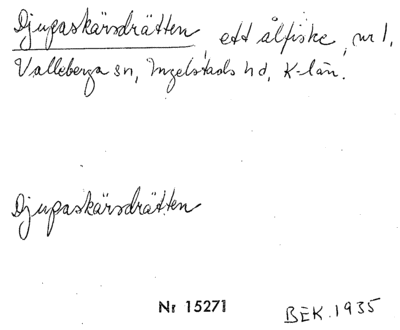 Djupaskärsdrätten, ett ålfiske, nr 1.
Valleberga sn, Ingelstads hd, K-län.
Djupaskärsdrätten
Nr 15271
BEK. 1935